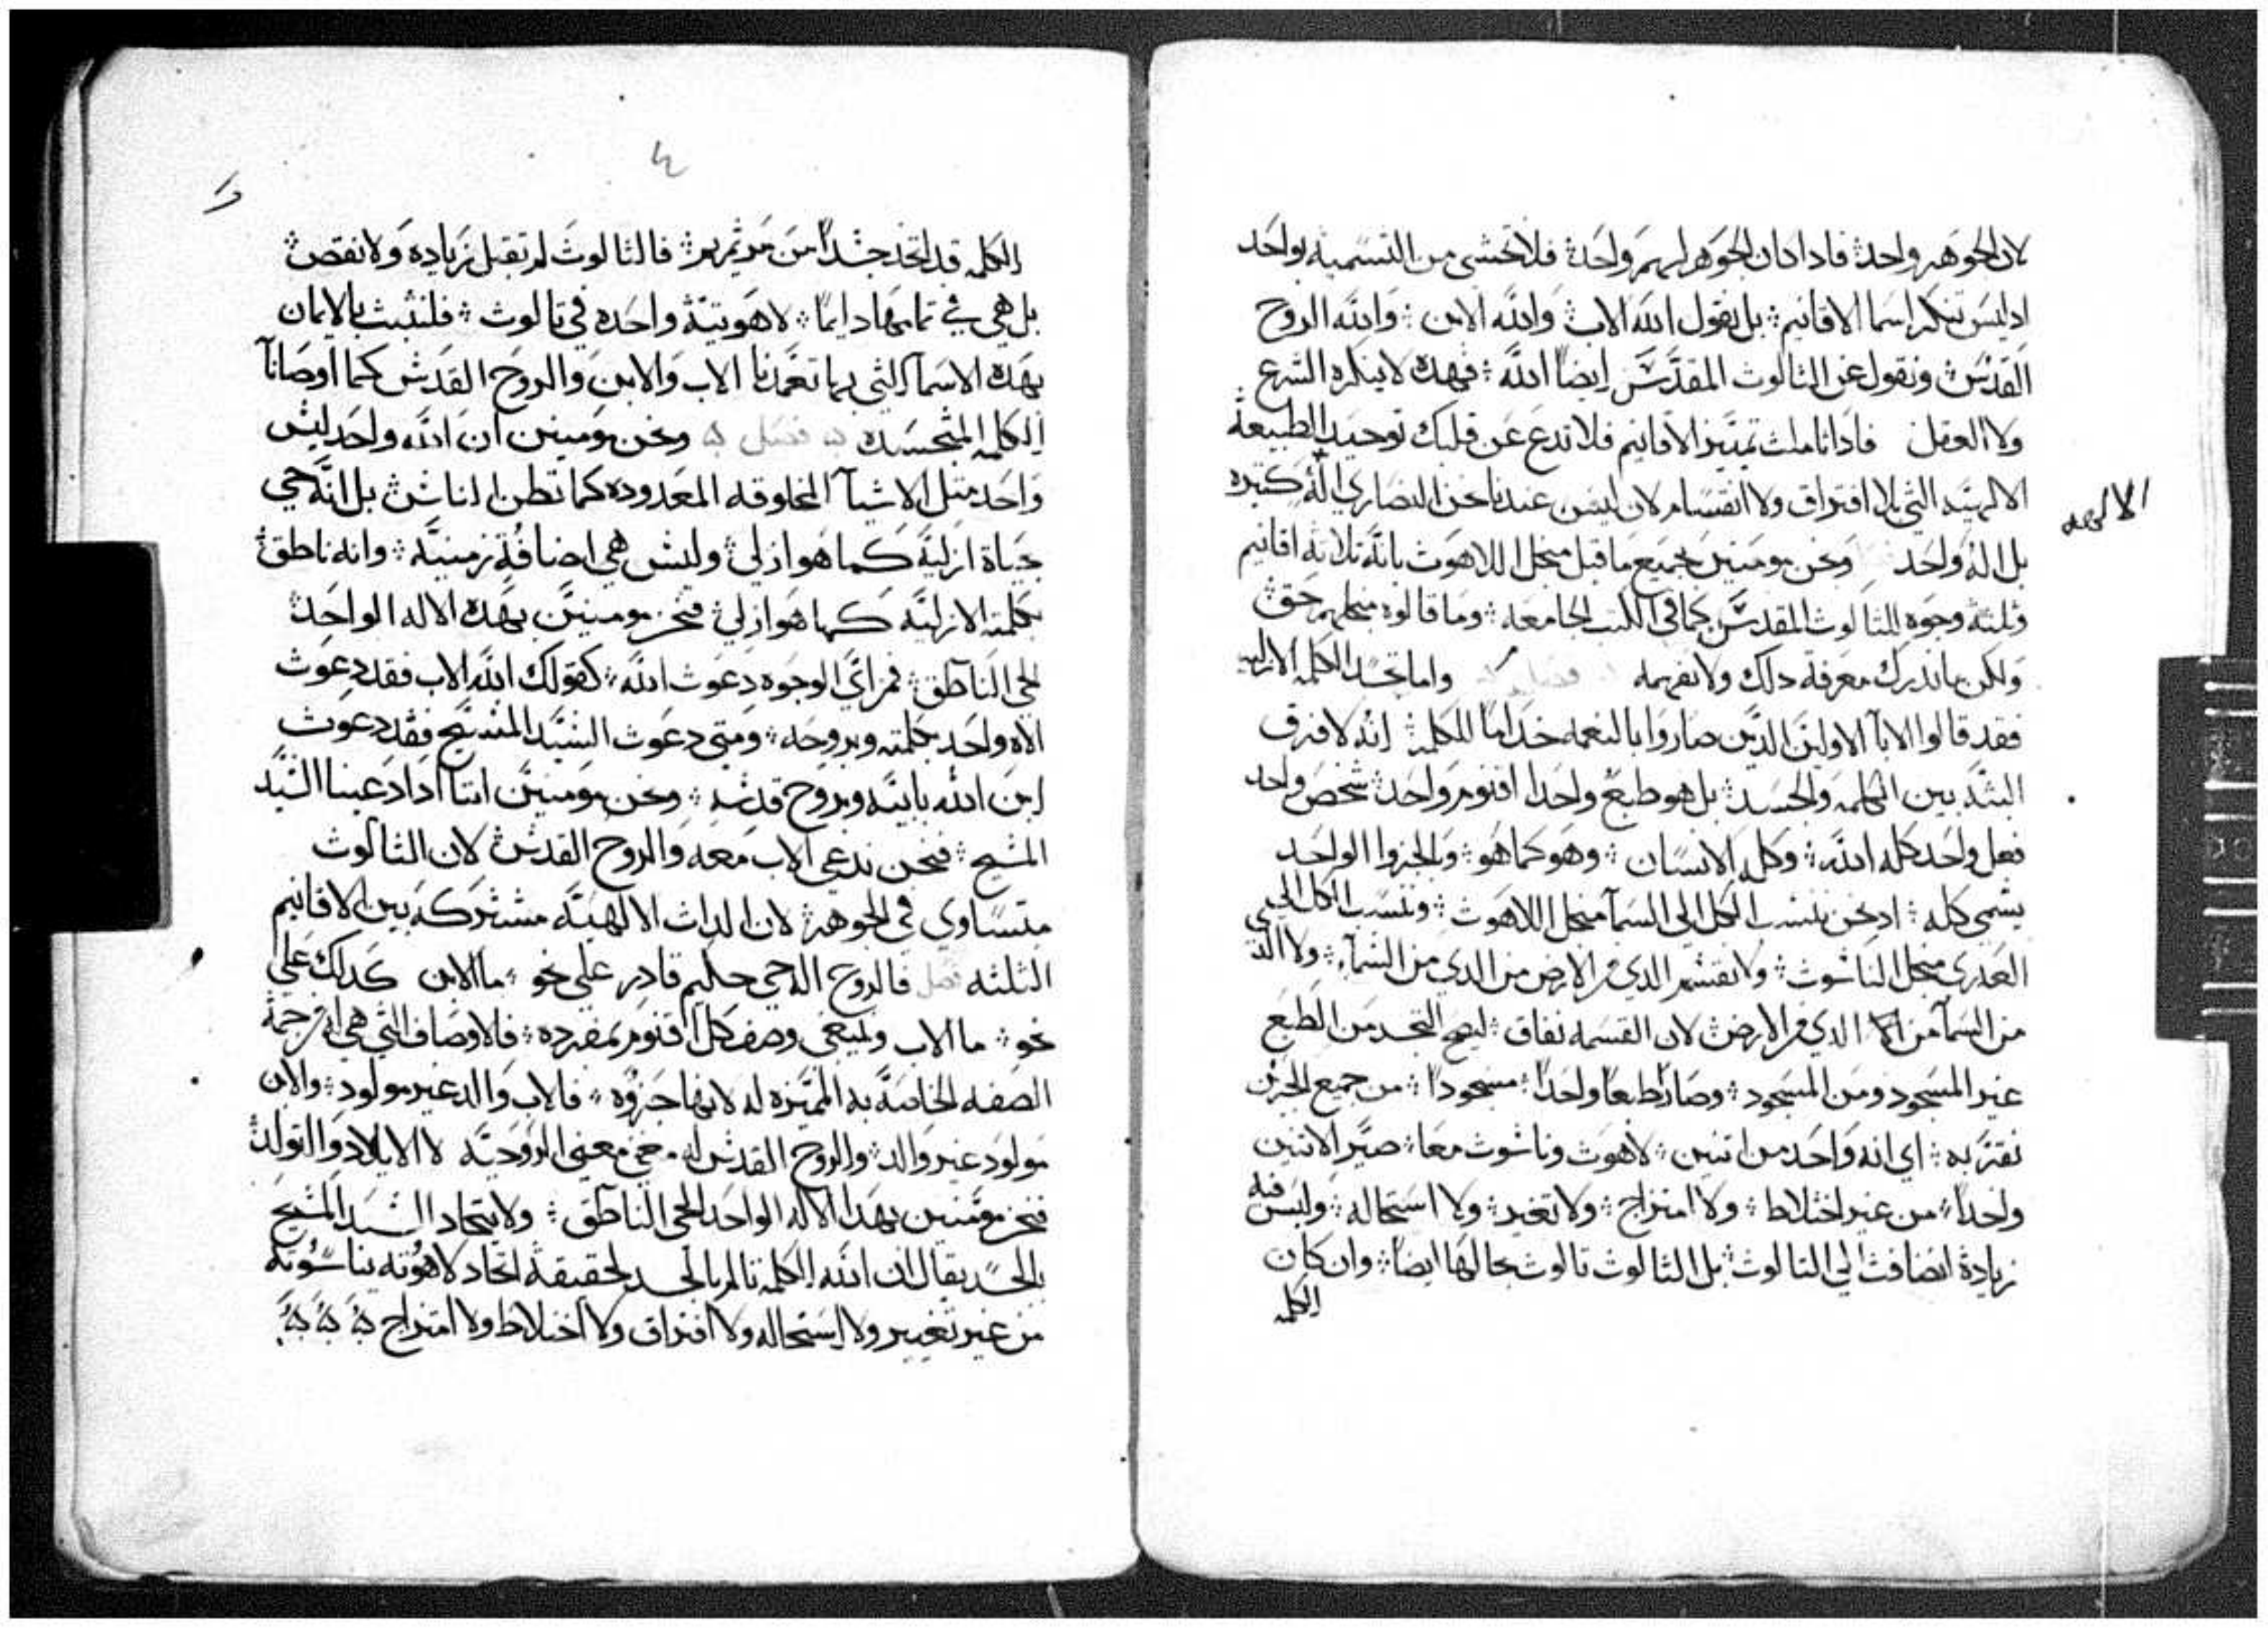 لان الجوهر واحد فاداكان الجوهر لهم واحد فلا تخشى من التسميه بواحد
اد ليس تنكر اسما الاقانيم بل نقول الله الاب والله الابن والله الروح
القدس ونقول عن الثالوث المقدس ايضاً الله فهده لا ينكره الشرع
ولا العقل فاداتاملت تمييز الاقانيم فلا تدع عن قلبك توحيد الطبيعه
الالهيه التي بلا افتراق ولا انقسام لان ليس عندنا نحن النصاري الهه كتيره
الالهه
بل اله واحد ونحن مومنين بجميع ما قيل منجل اللاهوت بانه تلاته اقانيم
وثلثة وجوه للثالوث المقدس كما في الكتب الجامعه وما قالوه منجلهم حق
ولكن ما ندرك معرفة دلك ولا نفهمه واما تجسد الكلمه الازليه
فقد قالوا الابا الاولين الدين صاروا بالنعمه خداماً للكلمة انه لا فرق
البته بين الكلمه والجسد بل هو طبع واحد اقنوم واحد شخص واحد
فعل واحد كله الله وكله الانسان وهو كما هو والجزوا الواحد
يسمي كله اد نحن ننسب الكل الي السما منجل اللاهوت وننسب الكل الي
العدري منجل الناسوت ولا نقسم الدي من الارض من الدي من السماء ولا الدي
من السما من الدي من الارض لان القسمه نفاق ليصح التجسد من الطبع
غير المسجود ومن المسجود وصار طبعاً واحداً مسجوداً من جميع الجهتين
نقر به اي انه واحد من اتنين لاهوت وناسوت معا صير الاتنين
واحداً من غير اختلاط ولا امتزاج ولا تغير ولا استحاله وليس فيه
زيادة انضافت الي الثالوث بل الثالوث تالوت بحالها ايضاً وان كان
الكلمه
٤
الكلمه قد اتخد جسداً من مرتمريم فالثالوث لم تقبل زياده ولا نقص
بل هي في تمامها دايماً لاهوتية واحده في تالوث فلنثبت بالايمان
بهده الاسما التي بها تعمدنا الاب والابن والروح القدس كما اوصانا
الكلمه المتجسده فصل ونحن مومنين ان الله واحد ليس
واحد متل الاشيا المخلوقه المعدوده كما تظن الناس بل انه حي
بحياة ازلية كما هو ازلي وليس هي اضافة زمنية وانه ناطق
بكلمته الازليه كما هو ازلي فنحن مومنين بهدا الاله الواحد
الحي الناطق فمن اي الوجوه دعوت الله كقولك الله الاب فقد دعوت
الاه واحد بكلمته وبروحه ومتي دعوت السيد المسيح فقد دعوت
ابن الله بابيه وبروح قدسه ونحن مومنين اننا ادا دعينا السيد
المسيح فنحن ندعي الاب معه والروح القدس لان الثالوث
متساوي في الجوهر لان الدات الالهية مشتركه بين الاقانيم
الثلثه فصل فالروح اله حي حكيم قادر علي نحو ما الابن كدلك علي
نحو ما الاب وينبغي وصف كل اقنوم بمفرده فالاوصاف التي هي له
الصفه الخاصة به المميزه له لانها فالاب والد غير مولود والابن
مولود غير والد والروح القدس له معني الروحية لا الايلاد والتولد
فنحن مومنين بهدا الاله الواحد الحي الناطق ولاتحاد السيد المسيح
بالجسد يقال ان الله الكلمه تالم بالجسد لحقيقة اتحاد لاهوته بناسوته
من غير تغيير ولا استحاله ولا افتراق ولا اختلاط ولا امتزاج